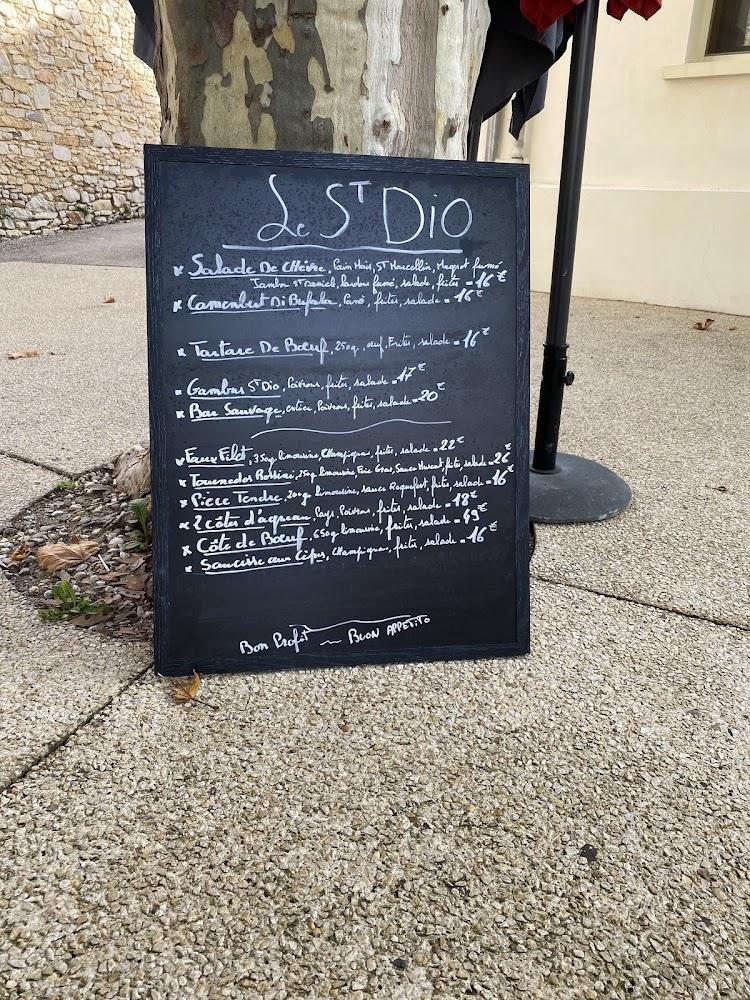 Le ST DiO
x Salade De Chèvre, Pain Maïs, ST Marcellin, Magret fumé
Jambon ST Daniel, lardon fumé, salade, frites = 16€
x Camembert Di Bufala, Pané, frites, salade = 16€
x Tartare De Bœuf, 250g, œuf, Frites, salade = 16€
- Gambas ST Dio, Poivrons, frites, salade = 17€
x Bar Sauvage, entier, Poivrons, frites, salade = 20€
x Faux Filet, 350g limousine, Champignons, frites, salade = 22€
x Tournedos Rossini, 250g limousine, Foie Gras, Sauce Muscat, frites, salade = 26€
x Pièce Tendre, 200g limousine, sauce Roquefort, frites, salade = 16€
x 2 Côtes d'agneau, Pays, Poivrons, frites, salade = 18€
x Côte de Bœuf, 650g limousine, frites, salade = 49€
x Saucisse aux Cèpes, Champignon, frites, salade = 16€
Bon Profit ~ BUON APPETITO